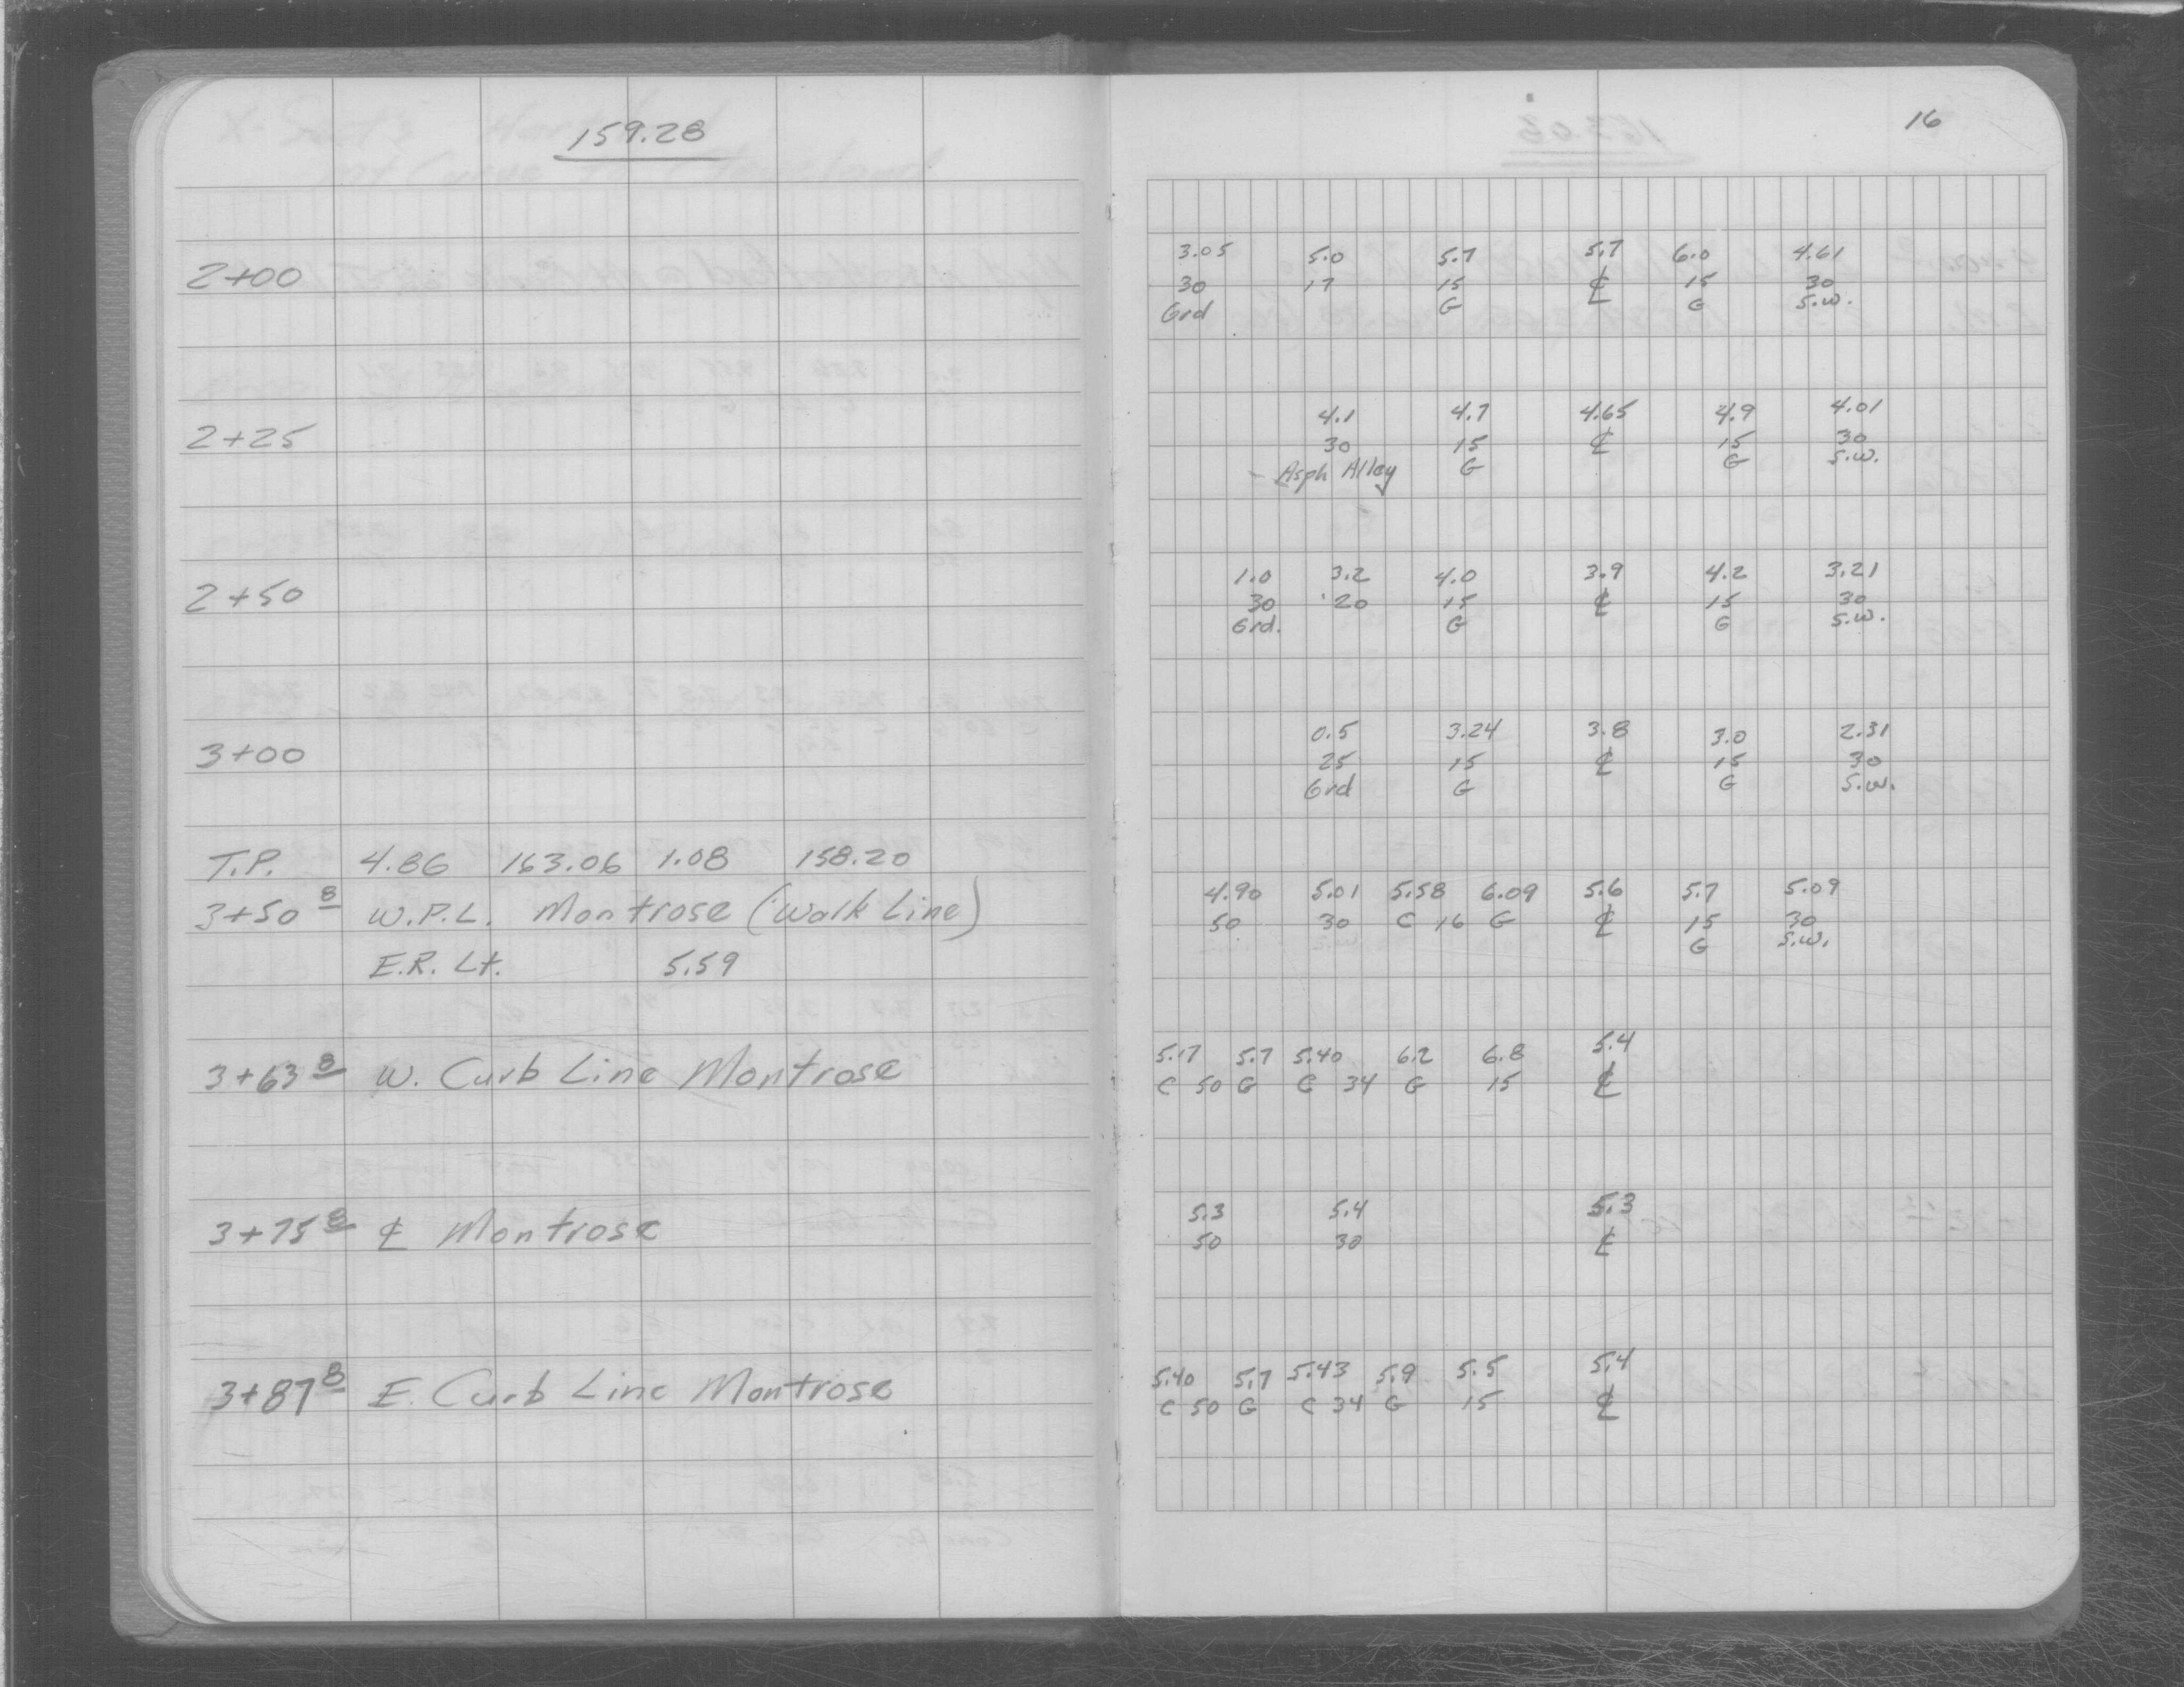 159.28
16
3.05 5.0 5.7 5.7 6.0 4.61
2+00 30 17 15 ℄ 15 30
Grd G G S.W.
4.1 4.7 4.65 4.9 4.01
2+25 30 15 ℄ 15 30
Asph Alley G G S.W.
1.0 3.2 4.0 3.9 4.2 3.21
2+50 30 20 15 ℄ 15 30
Grd. G G S.W.
0.5 3.24 3.8 3.0 2.31
3+00 25 15 ℄ 15 30
Grd G G S.W.
T.P. 4.86 163.06 1.08 158.20
4.90 5.01 5.58 6.09 5.6 5.7 5.09
3+50 8 W.P.L. Montrose (Walk Line) 50 30 C 16 G ℄ 15 30
G S.W.
E.R. Lt. 5.59
5.17 5.7 5.40 6.2 6.8 5.4
3+63 8 W. Curb Line Montrose C 50 G C 34 G 15 ℄
5.3 5.4 5.3
3+75 8 ℄ Montrose 50 30 ℄
5.40 5.7 5.43 5.9 5.5 5.4
3+87 8 E. Curb Line Montrose C 50 G C 34 G 15 ℄